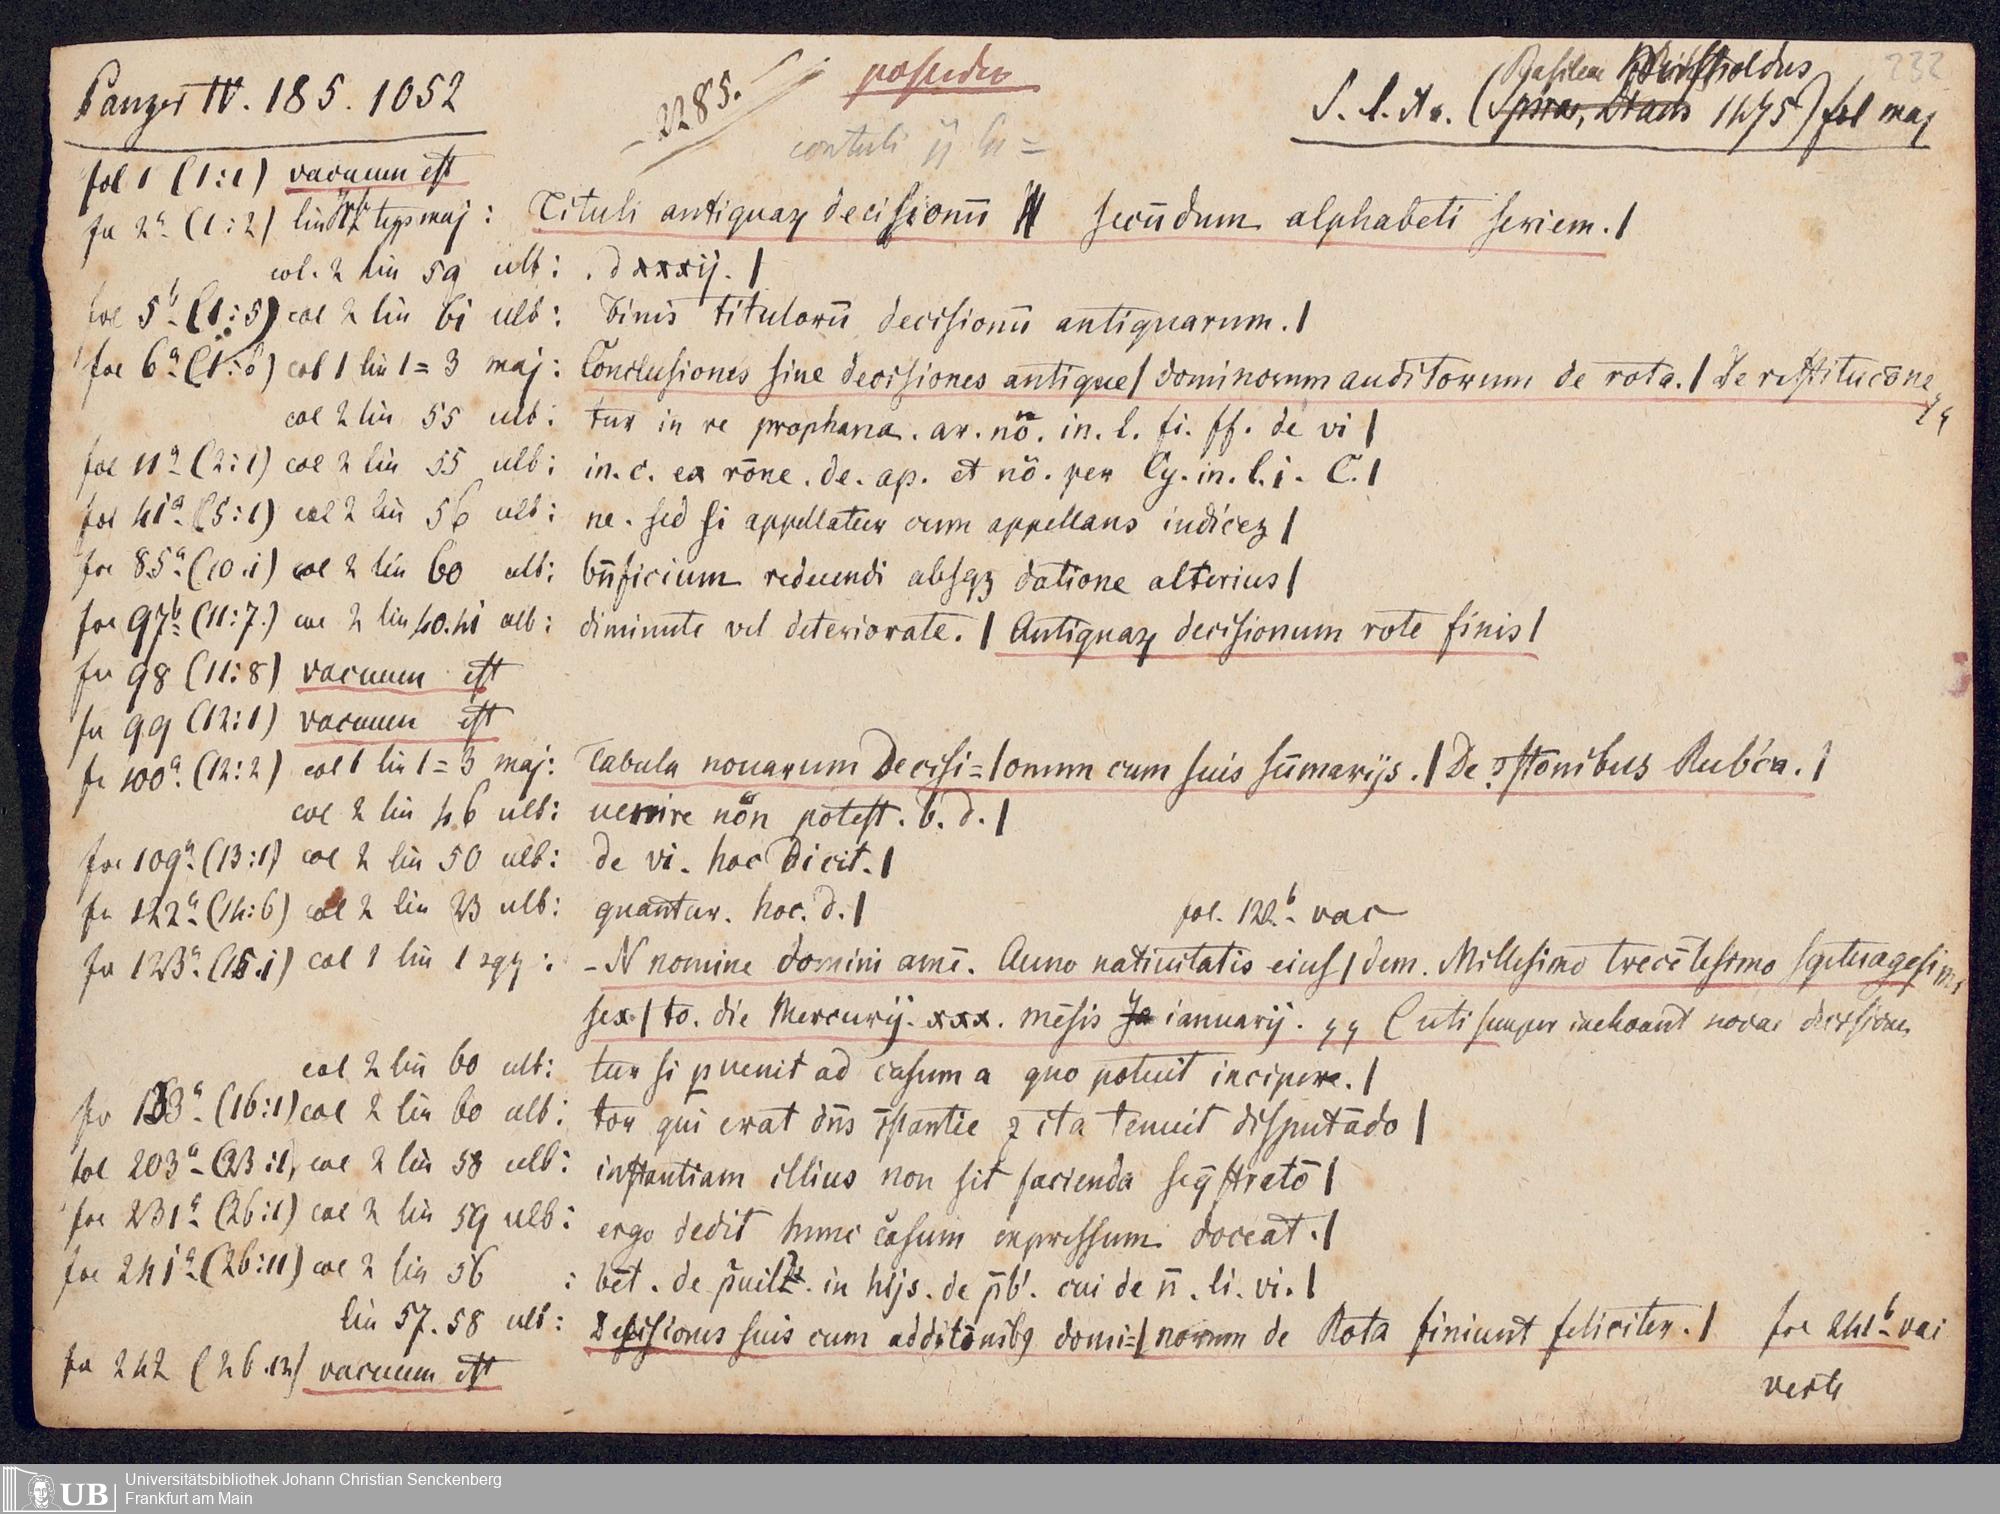 Panzer IV. 185. 1052
2285.
possideo
contuli
Basileae Wenssler Richel
S. l. A. (Spirae, Drach 1475) fol maj
232
fol 1 (1:1) vacuum est
fol 2a (1:2) lin 1 typ maj: Tituli antiquaꝝ decisionū secūdum alphabeti seriem. |
col. 2 lin 59 ult: . dxxxij. |
fol 5b (1:5) col 2 lin 61 ult: Finis titulorū decisionū antiquarum. |
fol 6a (1:6) col 1 lin 1=3 maj: Conclusiones siue decisiones antique | dominorum auditorum de rota. | De restitucōne
col 2 lin 55 ult: tur in re prophana. ar. nō. in. l. fi. ff. de vi |
fol 11a (2:1) col 2 lin 55 ult: in. c. ex rōne. de. ap. et nō. per Cy. in. l. i. C. |
fol 41a (5:1) col 2 lin 56 ult: ne. sed si appellatur cum appellans iudicez |
fol 85a (10.1) col 2 lin 60 ult: bn̄ficium reducendi absqz datione alterius |
fol 97b (11:7.) col 2 lin 40.41 ult: diminute vel deteriorate. | Antiquaꝝ decisionum rote finis |
fol 98 (11:8) vacuum est
fol 99 (12:1) vacuum est
fol 100a (12:2) col 1 lin 1=3 maj: Tabula nouarum Decisi=|onum cum suis sūmarijs. | De ꝯstōnibus Rub'ca. |
col 2 lin 46 ult: uenire nōn potest. b. d. |
fol 109a (13:1) col 2 lin 50 ult: de vi. hoc dicit. |
fol 122a (14:6) col 2 lin 23 ult: quantur. hoc. d. | fol. 122b vac
fol 123a (15.1) col 1 lin 1 sqq: -N nomine domini amē. Anno natiuitatis eius|dem. Millesimo trecētesimo septuagesimo
sex|to. die Mercurij. xxx. mēsis ianuarij. (uti semper inchoant novae decisiones
col 2 lin 60 ult: tur si ꝑuenit ad casum a quo potuit incipere. |
fol 133a (16:1) col 2 lin 60 ult: tor qui erat dn̄s ꝛ ita tenuit disputādo |
fol 203a (23:1) col 2 lin 58 ult: instantiam illius non sit facienda seq̄stratō |
fol 231a (26:1) col 2 lin 59 ult: ergo dedit hunc cāsum expressum doceat. |
fol 241a (26:11) col 2 lin 56 : bēt. de p̄uil. in hijs. de p̄b'. cui de n̄. li. vi. |
lin 57. 58 ult: Decisiones suis cum additōnibꝫ domi=|norum de Rota finiunt feliciter. | fol 241b vac
fol 242 (26.12) vacuum est
verte
UB
Universitätsbibliothek Johann Christian Senckenberg
Frankfurt am Main